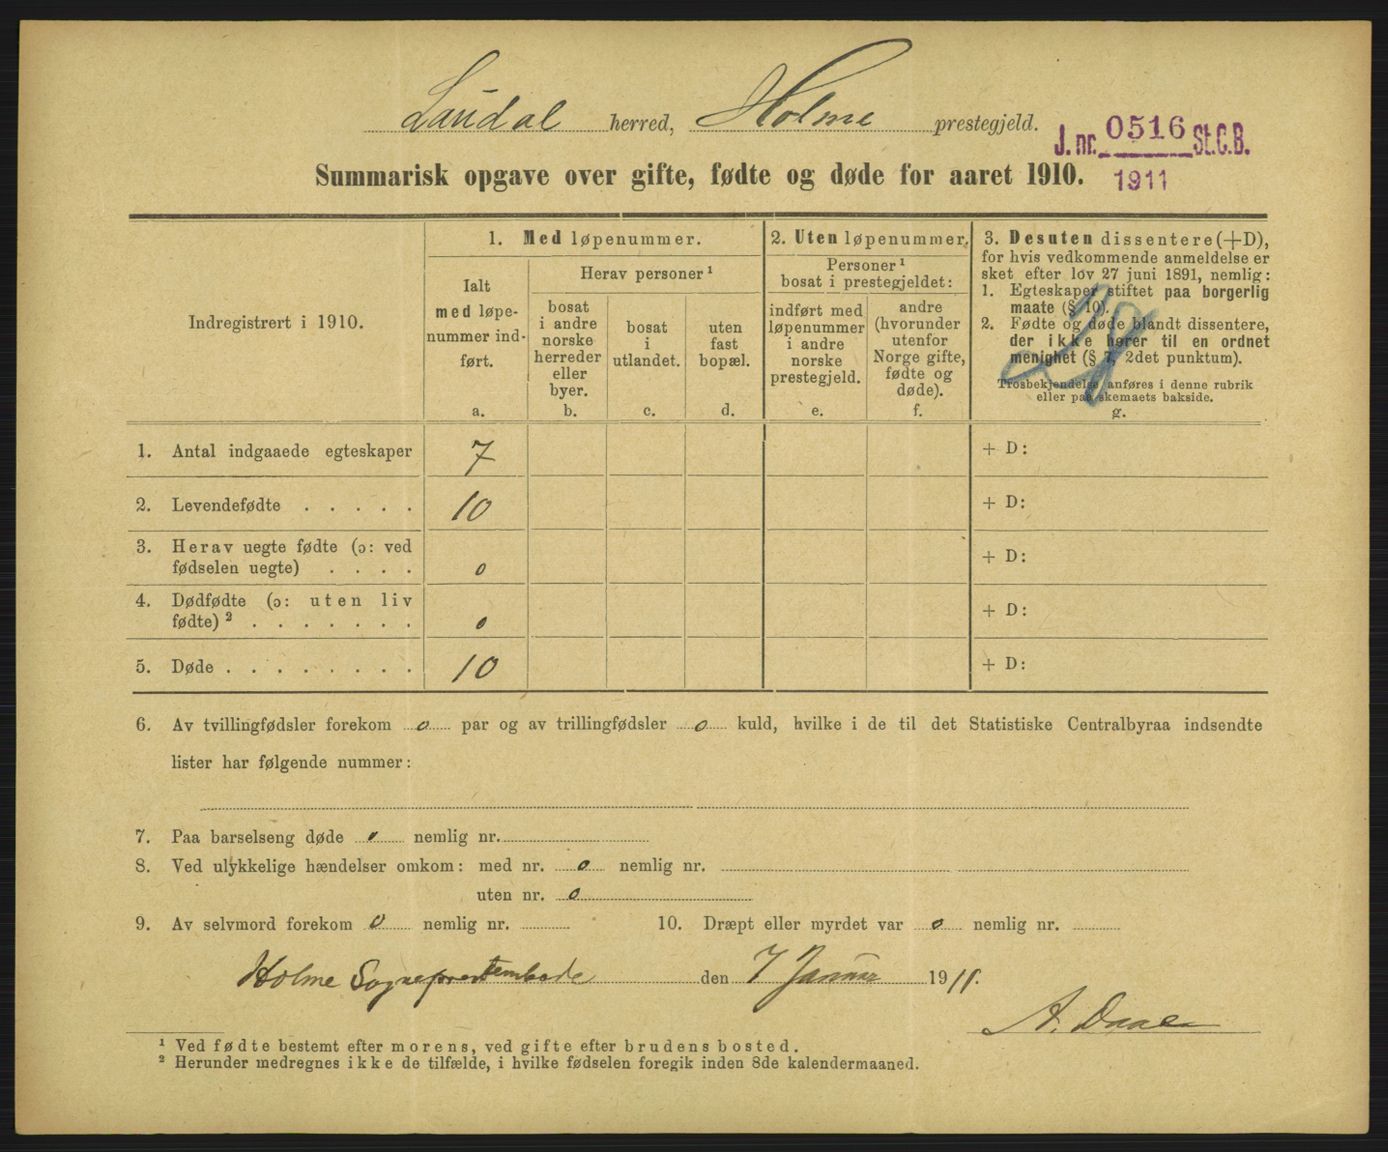 Laudal herred, Holme prestegjeld.
J. nr. 0516 St.C.B.
1911
Summarisk opgave over gifte, fødte og døde for aaret 1910.
Indregistrert i 1910.
1. Med løpenummer.
Ialt
med løpe-
nummer ind-
ført.
a.
Herav personer ¹
bosat
i andre
norske
herreder
eller
byer.
b.
bosat
i
utlandet.
c.
uten
fast
bopæl.
d.
2. Uten løpenummer.
Personer ¹
bosat i prestegjeldet:
indført med
løpenummer
i andre
norske
prestegjeld.
e.
andre
(hvorunder
utenfor
Norge gifte,
fødte og
døde).
f.
3. Desuten dissentere (+D),
for hvis vedkommende anmeldelse er
sket efter lov 27 juni 1891, nemlig:
1. Egteskaper stiftet paa borgerlig
maate (§ 10).
2. Fødte og døde blandt dissentere,
der ikke hører til en ordnet
menighet (§ 7, 2det punktum).
Trosbekjendelse anføres i denne rubrik
eller paa skemaets bakside.
g.
28
1. Antal indgaaede egteskaper 7 + D:
2. Levendefødte . . . . . 10 + D:
3. Herav uegte fødte (ɔ: ved
fødselen uegte) . . . . 0 + D:
4. Dødfødte (ɔ: uten liv
fødte) ² . . . . . . . 0 + D:
5. Døde . . . . . . . . 10 + D:
6. Av tvillingfødsler forekom 0 par og av trillingfødsler 0 kuld, hvilke i de til det Statistiske Centralbyraa indsendte
lister har følgende nummer:
7. Paa barselseng døde 0 nemlig nr.
8. Ved ulykkelige hændelser omkom: med nr. 0 nemlig nr.
uten nr. 0
9. Av selvmord forekom 0 nemlig nr. 10. Dræpt eller myrdet var 0 nemlig nr.
Holme Sogneprestembede den 7 Januar 1911.
A. Daae
¹ Ved fødte bestemt efter morens, ved gifte efter brudens bosted.
² Herunder medregnes ikke de tilfælde, i hvilke fødselen foregik inden 8de kalendermaaned.